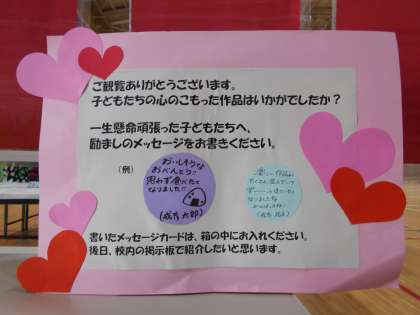 ご観覧ありがとうございます。
子どもたちの心のこもった作品はいかがでしたか？
一生懸命頑張った子どもたちへ、
励ましのメッセージをお書きください。
（例）
おいしそうな
おべんとう♡
思わず食べたく
なりました!!
書いたメッセージカードは、箱の中にお入れください。
後日、校内の掲示板で紹介したいと思います。